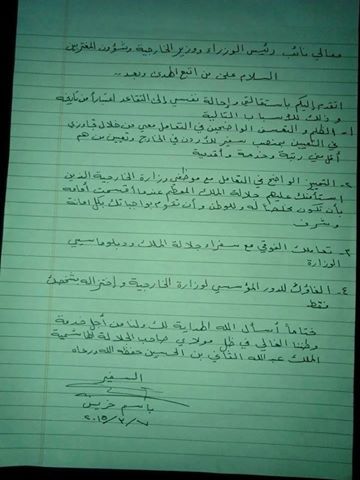 معالي نائب رئيس الوزراء ووزير الخارجية وشؤون المغتربين
السلام على من اتبع الهدى وبعد،،
اتقدم إليكم باستقالتي وإحالة نفسي إلى التقاعد اعتباراً من تاريخه
وذلك للأسباب التالية
١- الظلم والتعسف الواضحين في التعامل معي من خلال تجاوزي
في التعيين بمنصب سفير للأردن في الخارج وتعيين من هم
أقل مني رتبة وخدمة وأقدمية
٢- التمييز الواضح في التعامل مع موظفي وزارة الخارجية الذين
استأمنك عليهم جلالة الملك المعظم عندما أقسمت أمامه
بأن تكون مخلصاً له وللوطن وأن تقوم بواجباتك بكل أمانة
وشرف
٣- تعاملك الفوقي مع سفراء جلالة الملك ودبلوماسيي
الوزارة
٤- الغائك للدور المؤسسي لوزارة الخارجية واختزاله بشخصين
فقط
ختاماً أسأل الله الهداية لك ولنا من أجل خدمة
وطننا الغالي في ظل مولاي صاحب الجلالة الهاشمية
الملك عبدالله الثاني بن الحسين حفظه الله ورعاه
السفير
باسم خريس
٢٠١٥/٣/٨